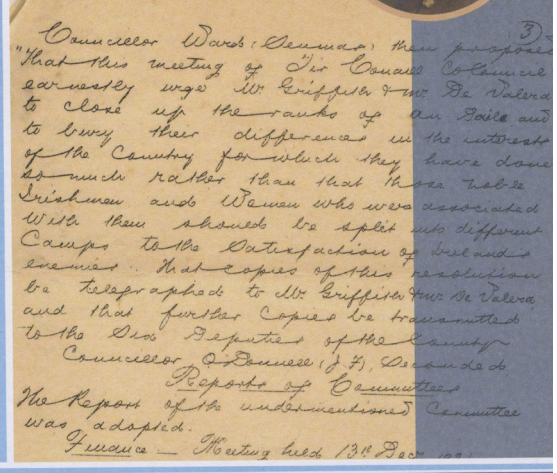 3)
Councillor Ward (Seumas) then proposed
"That this meeting of Tir Conaill Co Council
earnestly urge Mr Griffith & Mr De Valera
to close up the ranks of an Dail and
to bury their differences in the interests
of the Country for which they have done
so much rather than that those noble
Irishmen and Women who were associated
with them should be split into different
Camps to the Satisfaction of Irelands
enemies. That copies of this resolution
be telegraphed to Mr Griffith & Mr De Valera
and that further copies be transmitted
to the Six Deputies of the County
Councillor O'Donnell (J F), Seconded
Reports of Committees
The Report of the undermentioned Committee
was adopted.
Finance — Meeting held 13th Decr